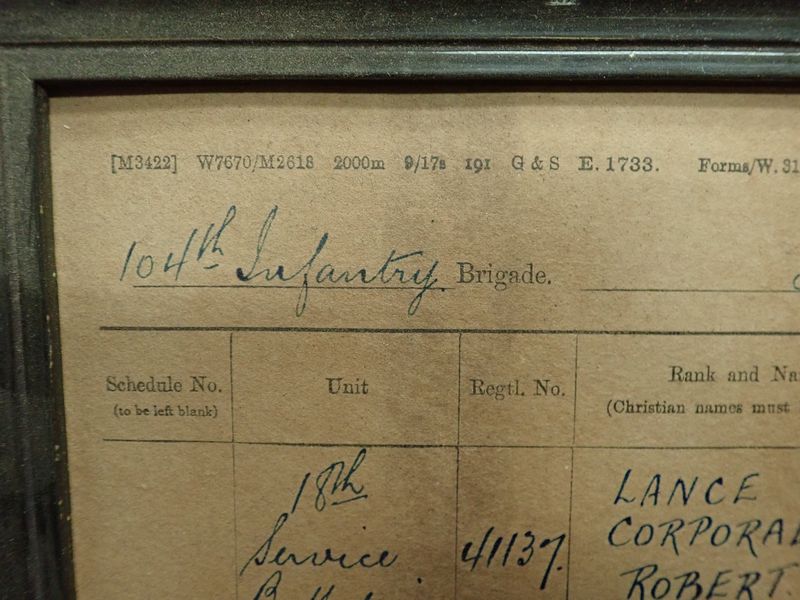 [M3422] W7670/M2618 2000m 9/17s 191 G & S E. 1733. Forms/W. 31
104th Infantry Brigade.
Schedule No. Unit Regtl. No. Rank and Na
(to be left blank) (Christian names must
18th LANCE
Service 41137. CORPORAL
ROBERT.